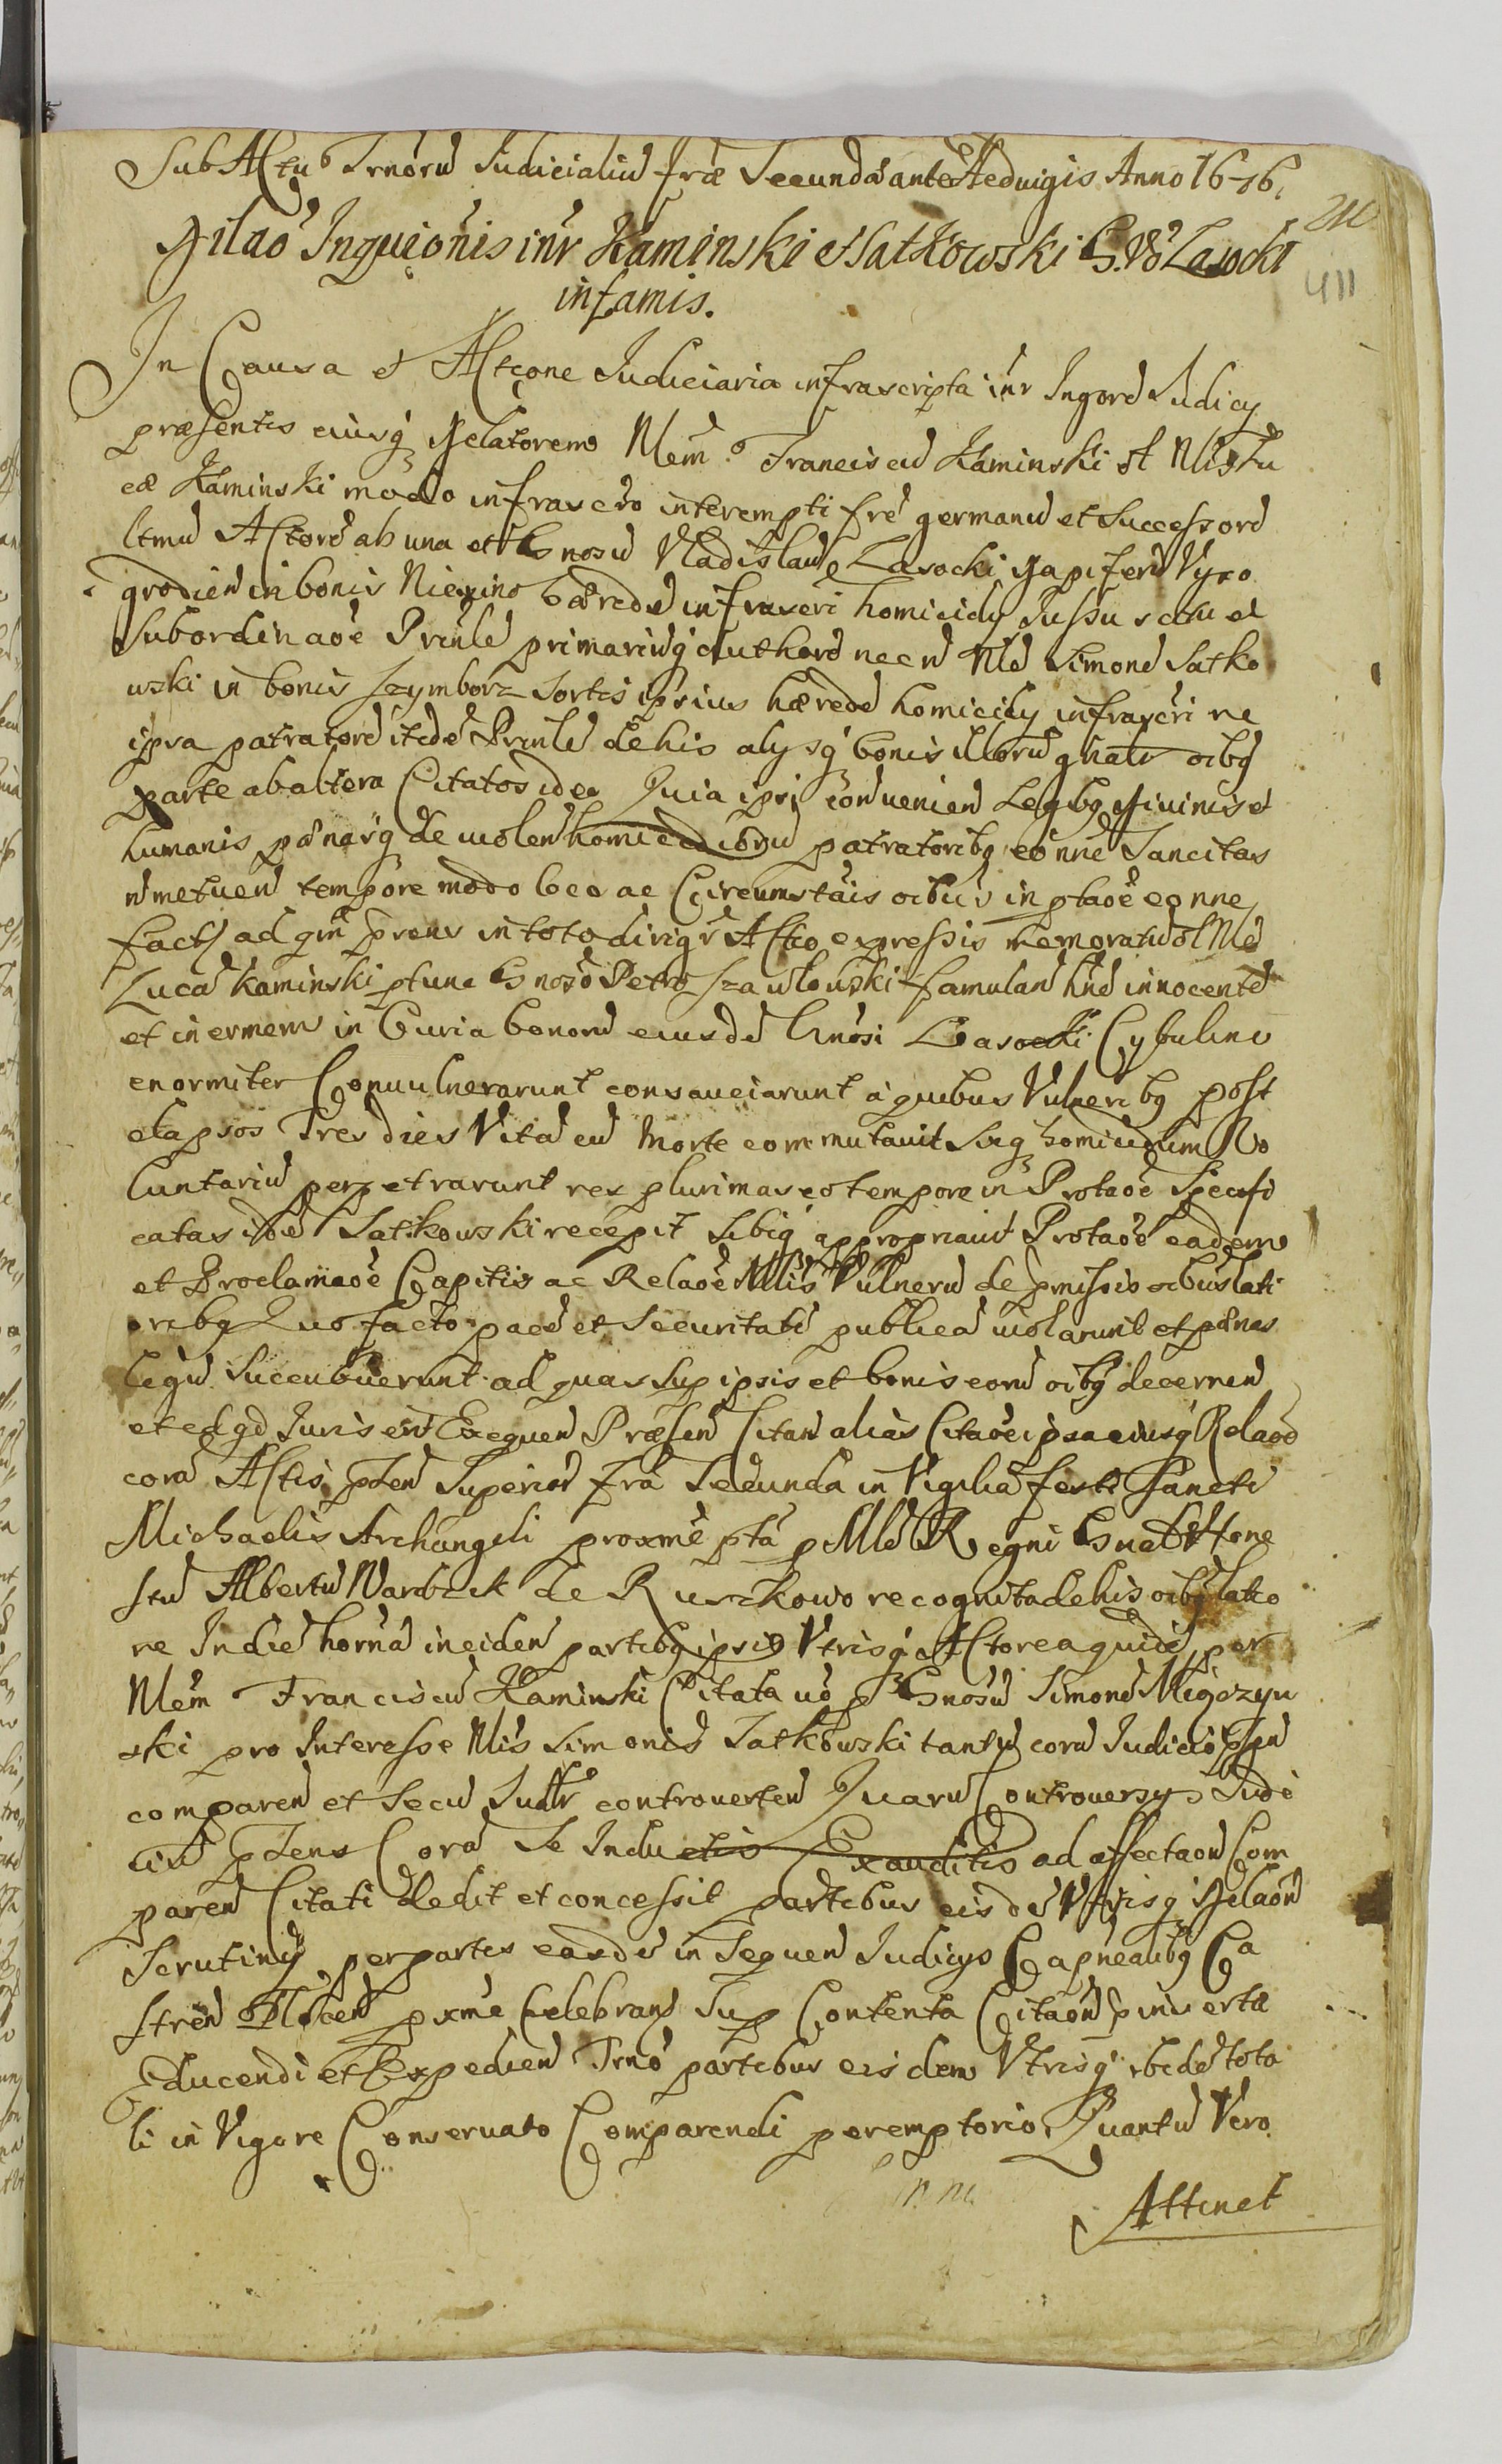 Sub Actu Trnoru Judicialiu fra Secunda ante Hedvigis Anno 1676.
211
Dilao Inquionis inr Kaminski et Satkowski G. Vo Lasocki
411
infamis.
In Causa et Actione Judiciaria infrascripta inr Ingord Judicy
præsentis eiusq Delatorem Nlem Franciscu Kaminski ol Nlis Lu
cæ Kaminski modo infrascro interempti fre germanu et Successore
ltmu Actore ab una et Gnosu Vladislau Lasocki Dapiferu Vyszo
grodien in bonis Niemino hærede infrascri homicidy Jussu scitu et
Subordinaoe Prinle primariuq Authore necn Nle Simone Satko
wski in bonis Szymborz Sortis ipsius hærede homicidy infrascri re
ipsa patratore itede Prinle de his alysq bonis illoru gnalr oibq
parte ab altera Citatos ideo Quia ipsi convenien Legibq Divinis et
humanis pænasq de violen homicidioru patratoribq eonne Sancitas
n metuen tempore modo loco ac Circumstais oibus in ptaoe eonne
facti ad qm prout in toto dirigr Actio expressis memoratu ol Nle
Luca Kaminski ptunc Gnoso Petro Szawlowski famulan hne innocente
et inermem in Curia bonoru eiusde Gnosi Lasocki Cybulino
enormiter Convulnerarunt consauciarunt a quibus Vulneribq post
elapsos Tres dies Vita cu Morte commutavit Sicq homicidium Vo
luntariu perpetrarunt res plurimas eo tempore in Protaoe Specifi
catas ide Satkowski recepit Sibiq appropriavit Protaoe eadem
et Proclamaoe Capitis ac Relaoe Mlis Vulneru de pmissis oibus lati
oribq Quo facto pace et Securitate publica violarunt et pænas
legu Succubuerunt ad quas Sup ipsis et bonis eoru oibq decernen
et id qd Juris erit Exequen Præsen Citan alias Citaoe ipsa eiusq Relaoe
cora Actis pten Superior fra Secunda in Vigilia festi Sancti
Michaelis Archangeli proxme pta p Mle Regni Gnale Hone
stu Albertu Wardzik de Ruszkowo recognita de his oibq latio
re In die horna inciden partibq ipsis Vtrisq Actorea quide per
Nlem Franciscu Kaminski Citata vo p Gnosu Simone Migoszyn
ski pro Interesse Nlis Simonis Satkowski tantu cora Judicio ppn
comparen et Secu Judlr controverten Quaru Controversys Judi
ciu ptens Cora Se Inductis Exauditis ad affectaon Com
paren Citati dedit et concessit partibus eisde Vtrisq Delaon
Scrutiny per partes easde in Sequen Judicys Capnealibq Ca
stren Plocen pxme Celebran Sup Contenta Citaon pins ertæ
Educendi et Expedien Trno partibus eisdem Vtrisq ibide tota
li in Vigore Conservato Comparendi peremptorio. Quantu Vero
Attinet